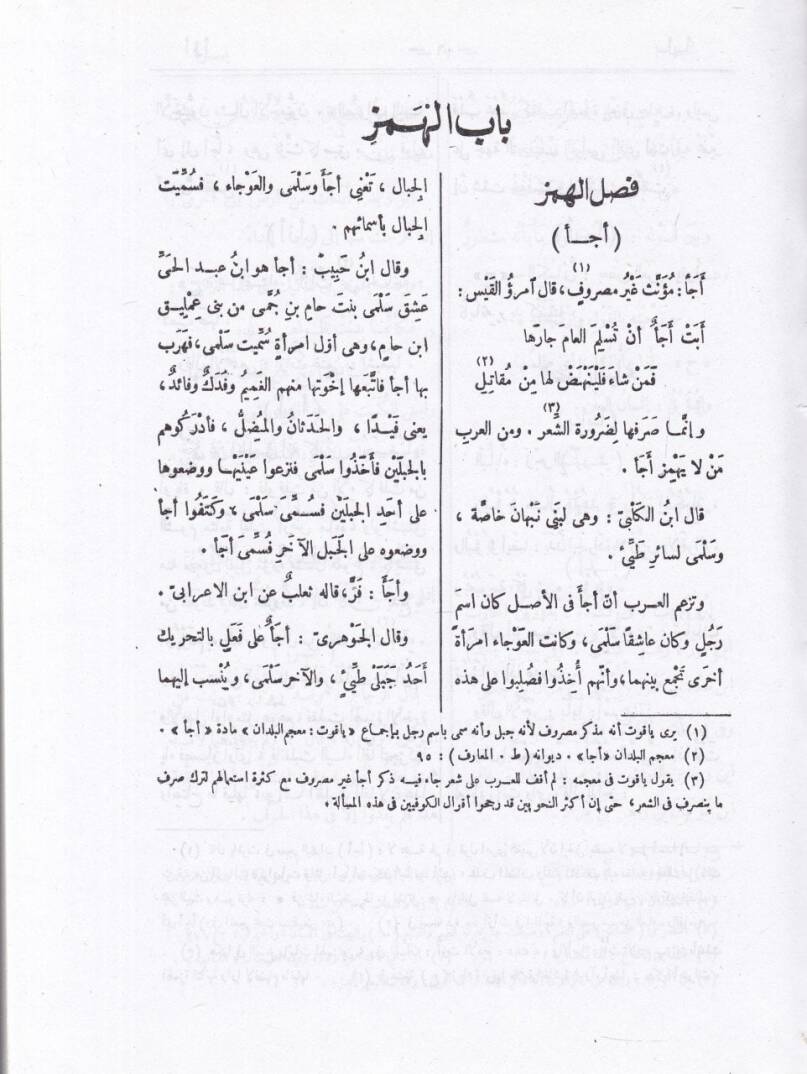 باب الهمز
فصل الهمز
( أجـأ )
أَجَأ : مُؤَنَّث غَيْرُ مصروفٍ (١) ، قال أمرؤ القَيْس :
أَبَتْ أَجَأٌ أنْ تُسْلِمَ العامَ جارَها
فَمَنْ شاءَ فَلْيَنْهَضْ لها مِنْ مُقاتِلِ (٢)
وإنّمـا صَرفها لِضَرُورة الشّعر (٣) . ومن العرب
مَنْ لا يَهْمِز أَجَأ .
قال ابنُ الكَلْبِيّ : وهى لبَنِى نَبْهانَ خاصّة ،
وسَلْمَى لسائرِ طَيِّئ .
وتزعم العـرب أنّ أجأ فى الأصـل كان اسمَ
رَجُلٍ وكان عاشِقًا سَلْمَى ، وكانت العَوْجاء امرأةً
أخرَى تَجْمع بينهما ، وأنّهم أُخِذُوا فصُلِبوا على هذه
الجبال ، تَعْنِى أجَأَ وَسَلْمَى والعَوْجاء ، فَسُمِّيَت
الجبال بأسمائهم .
وقال ابنُ حَبِيبَ : أجأ هو ابنُ عبـد الحَىِّ
عَشِقَ سَلْمَى بنتَ حامِ بنِ جُمَّى من بنى عِمْلِيـق
ابن حامٍ ، وهى أوّل امرأةٍ سُمِّيت سَلْمى ، فهَرَب
بها أجأ فاتَّبعَها إخْوَتها منهم الغَمِيم وفَدَكٌ وفائدٌ ،
يعنى فَيْـدًا ، والحَدَثانُ والمُضِلُّ ، فأدْرَكُوهم
بالجَبلَيْن فأخَذُوا سَلْمَى فنزعوا عَيْنَيْهـا ووضعوها
على أحد الجبلَيْن فسُـمِّىَ سَلْمَى ، وكَتَفُوا أجأ
ووضعوه على الجَبل الآخَر فسُمِّىَ أجأ .
وأجَأَ : فَرَّ ، قاله ثعلبٌ عن ابن الاعرابىّ .
وقال الجَوْهرىّ : أجَأٌ على فَعَلٍ بالتحريك
أَحَدُ جَبَلَىْ طَيِّئٍ ، والآخر سَلْمَى ، ويُنْسب إليهما
(١) يرى ياقوت أنه مذكر مصروف لأنه جبل وأنه سمى باسم رجل بإجماع « ياقوت : معجم البلدان » مادة « أجأ » .
(٢) معجم البلدان « أجأ » . ديوانه ( ط . المعارف ) : ٩٥
(٣) يقول ياقوت فى معجمه : لم أقف للعـرب على شعر جاء فيـه ذكر أجأ غير مصروف مع كثرة استعمالهم لترك صرف
ما ينصرف فى الشعر ، حتى إن أكثر النحويين قد رجحوا أقوال الكوفيين فى هذه المسألة .